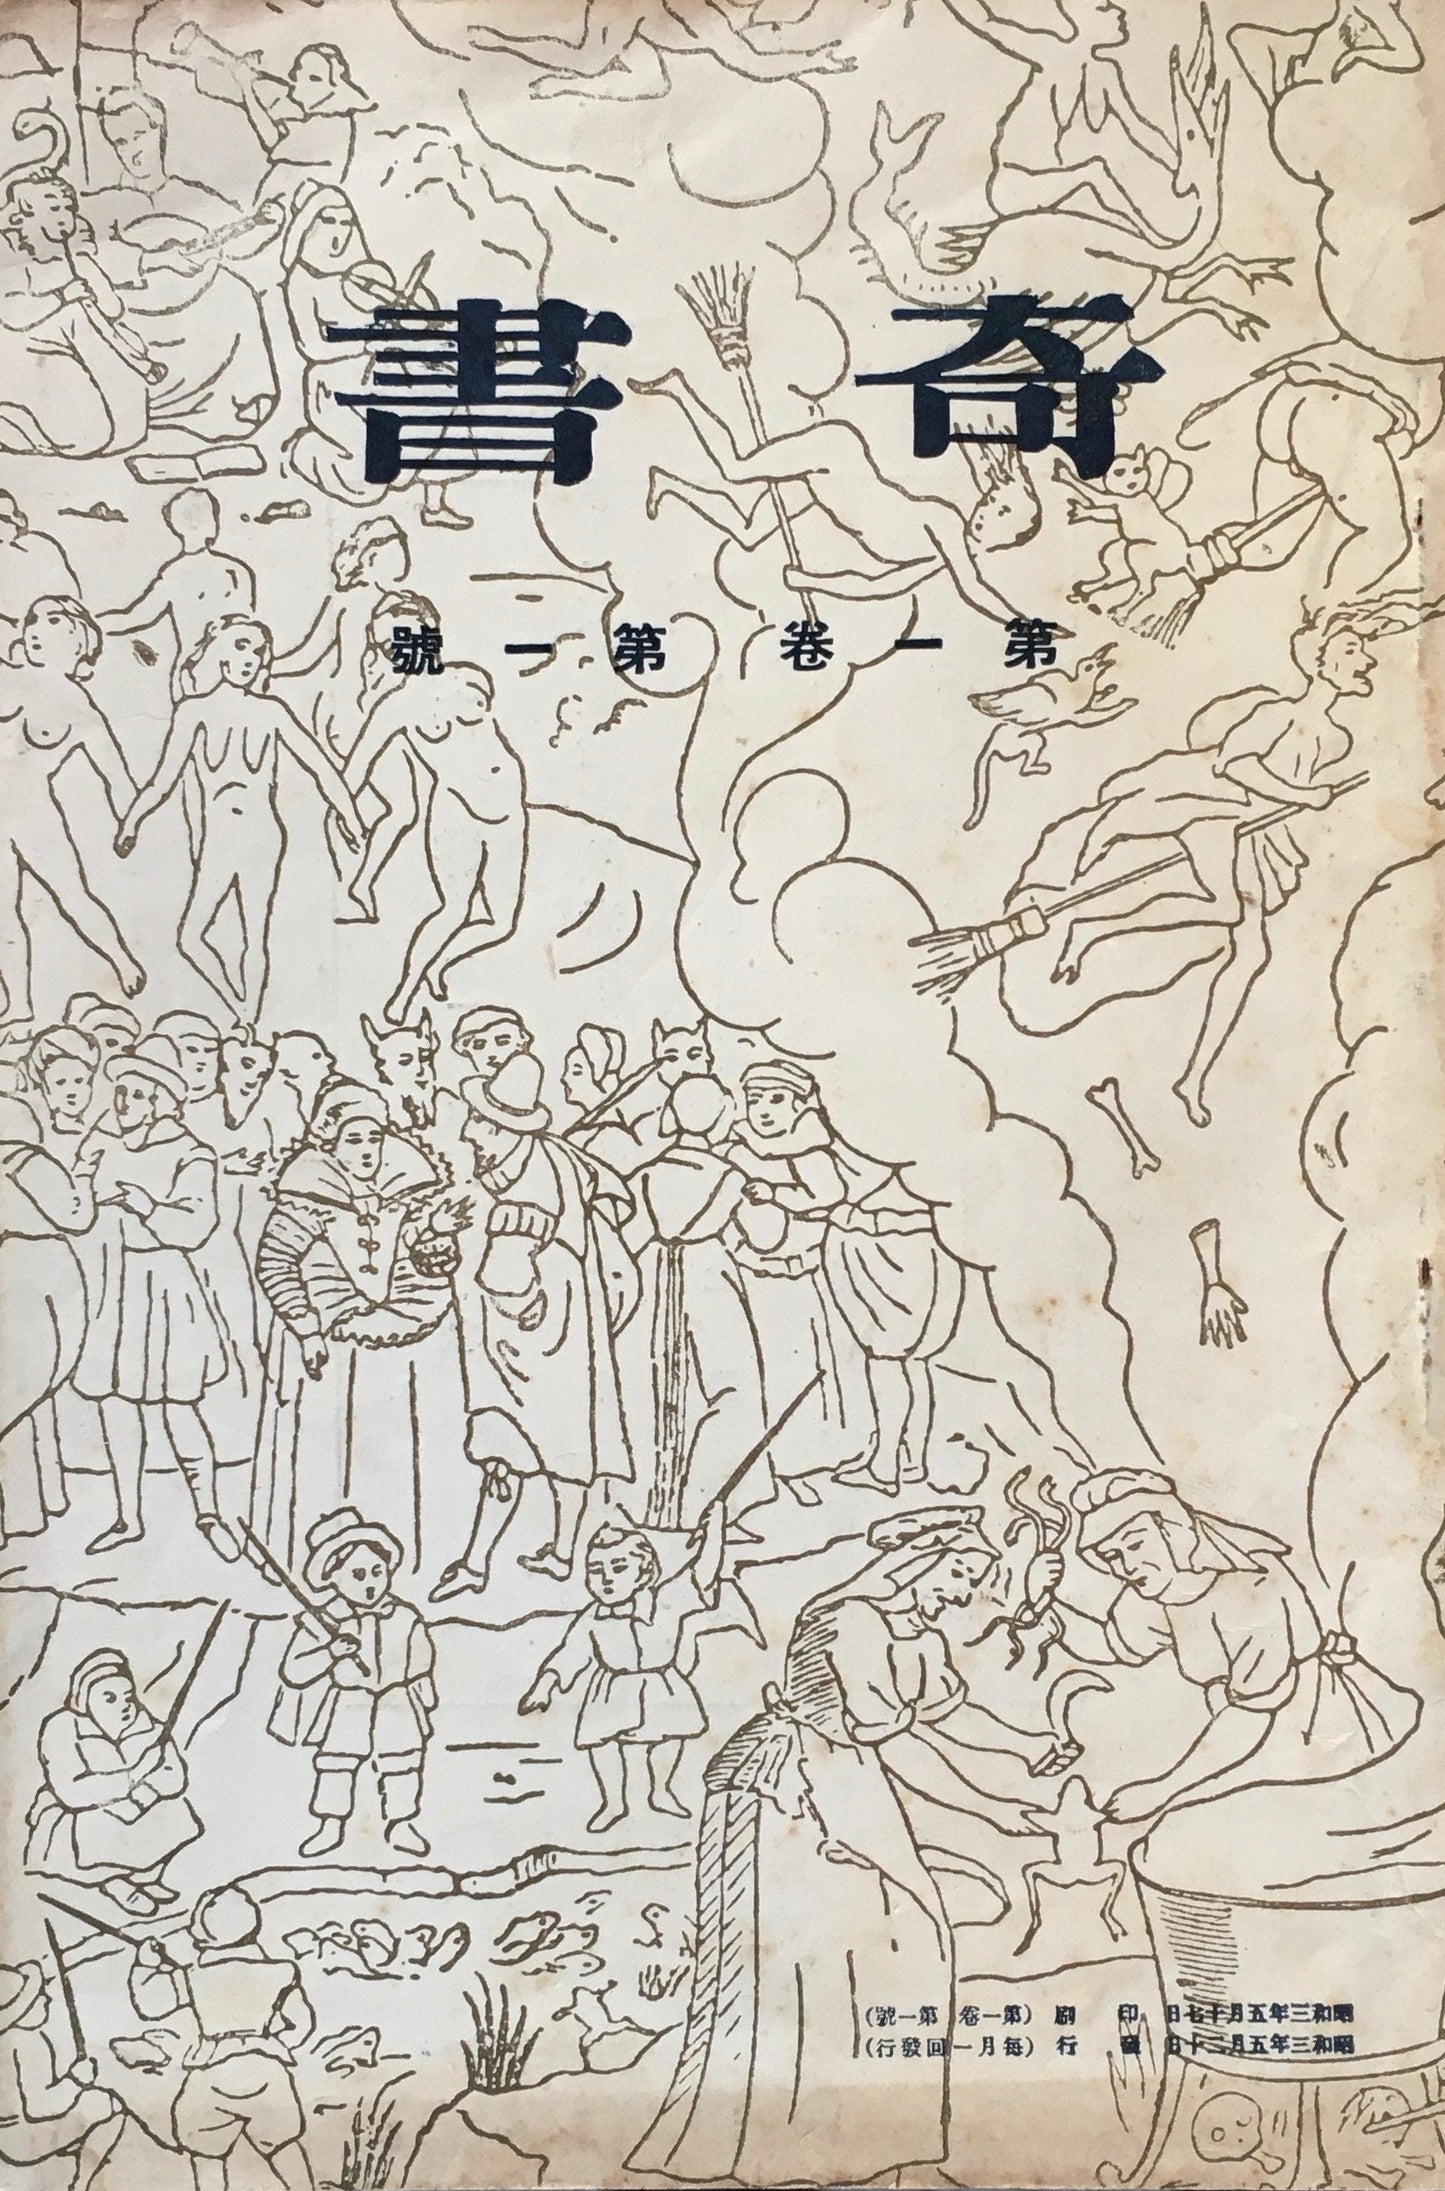 奇書
第一卷第一號
昭和三年五月十七日 印 刷 (第一卷 第一號)
昭和三年五月二十日 發 行 (每月一回發行)